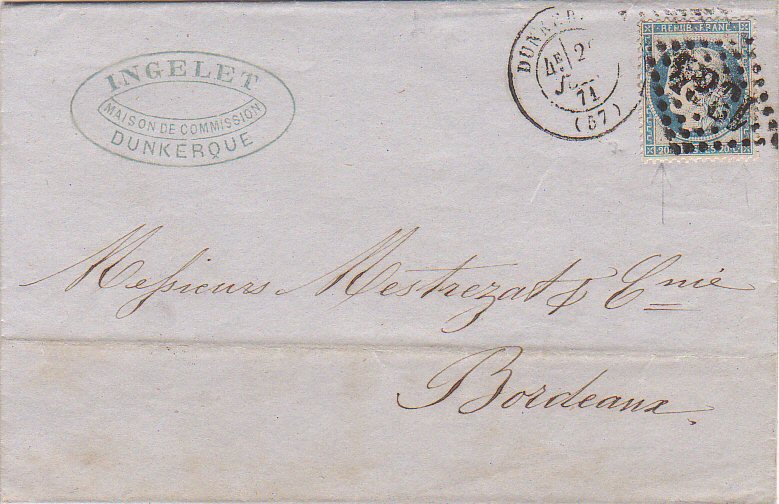 INGELET
MAISON DE COMMISSION
DUNKERQUE
DUNKER
4E 2
71
(57)
REPUB. FRANC.
Messieurs Mestrezat & Cnie
Bordeaux